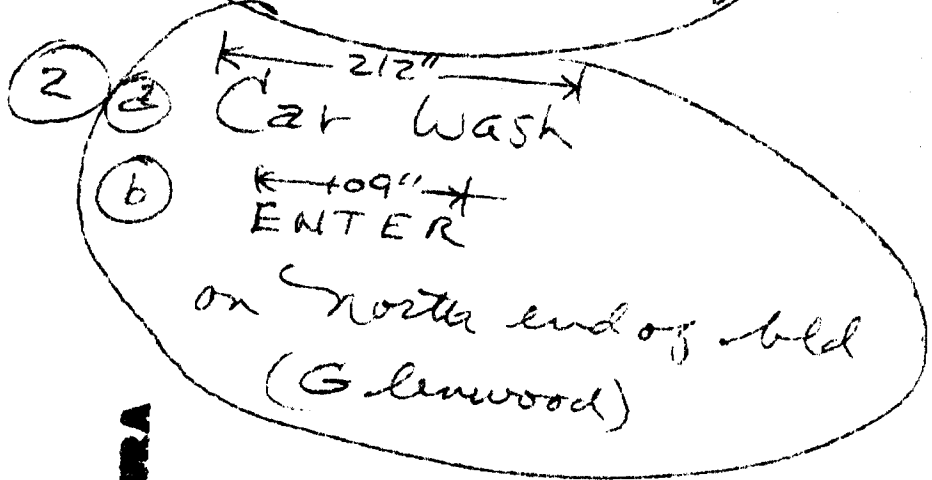 2
a 212"
Car Wash
b 109"
ENTER
on North end of bld
(Glenwood)